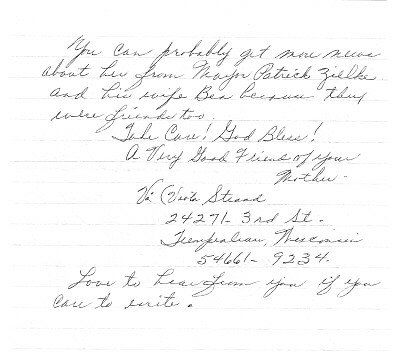 You can probably get more news
about her from Mayor Patrick Zielke
and his wife Bea because they
were friends too.
Take Care! God Bless!
A Very Good Friend of your
Mother-
Vi (Viola Strand
24271- 3rd St.
Trempealeau, Wisconsin
54661-9234.
Love to hear from you if you
care to write.